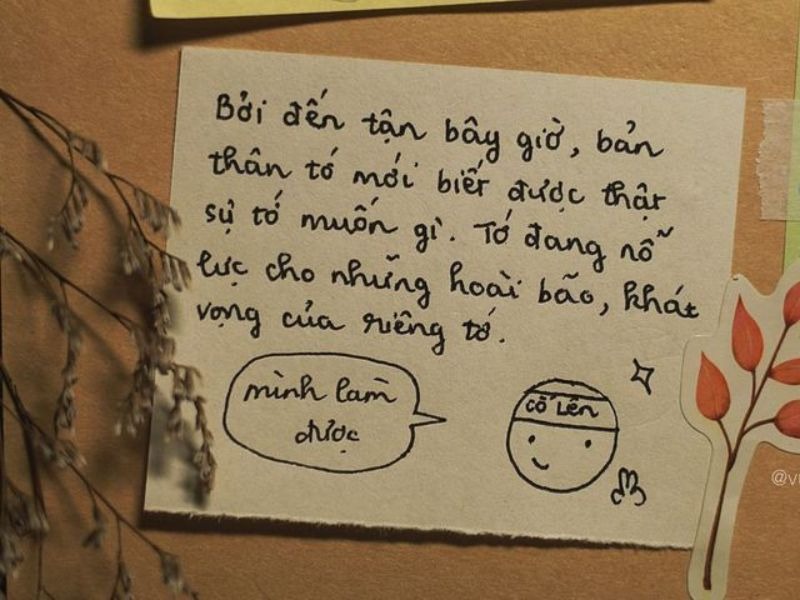 Bởi đến tận bây giờ, bản
thân tớ mới biết được thật
sự tớ muốn gì. Tớ đang nỗ
lực cho những hoài bão, khát
vọng của riêng tớ.
mình làm
được
CỐ LÊN